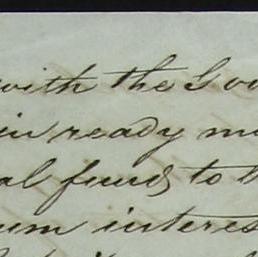 with the Gov
in ready mo
al fund, to th
um interes